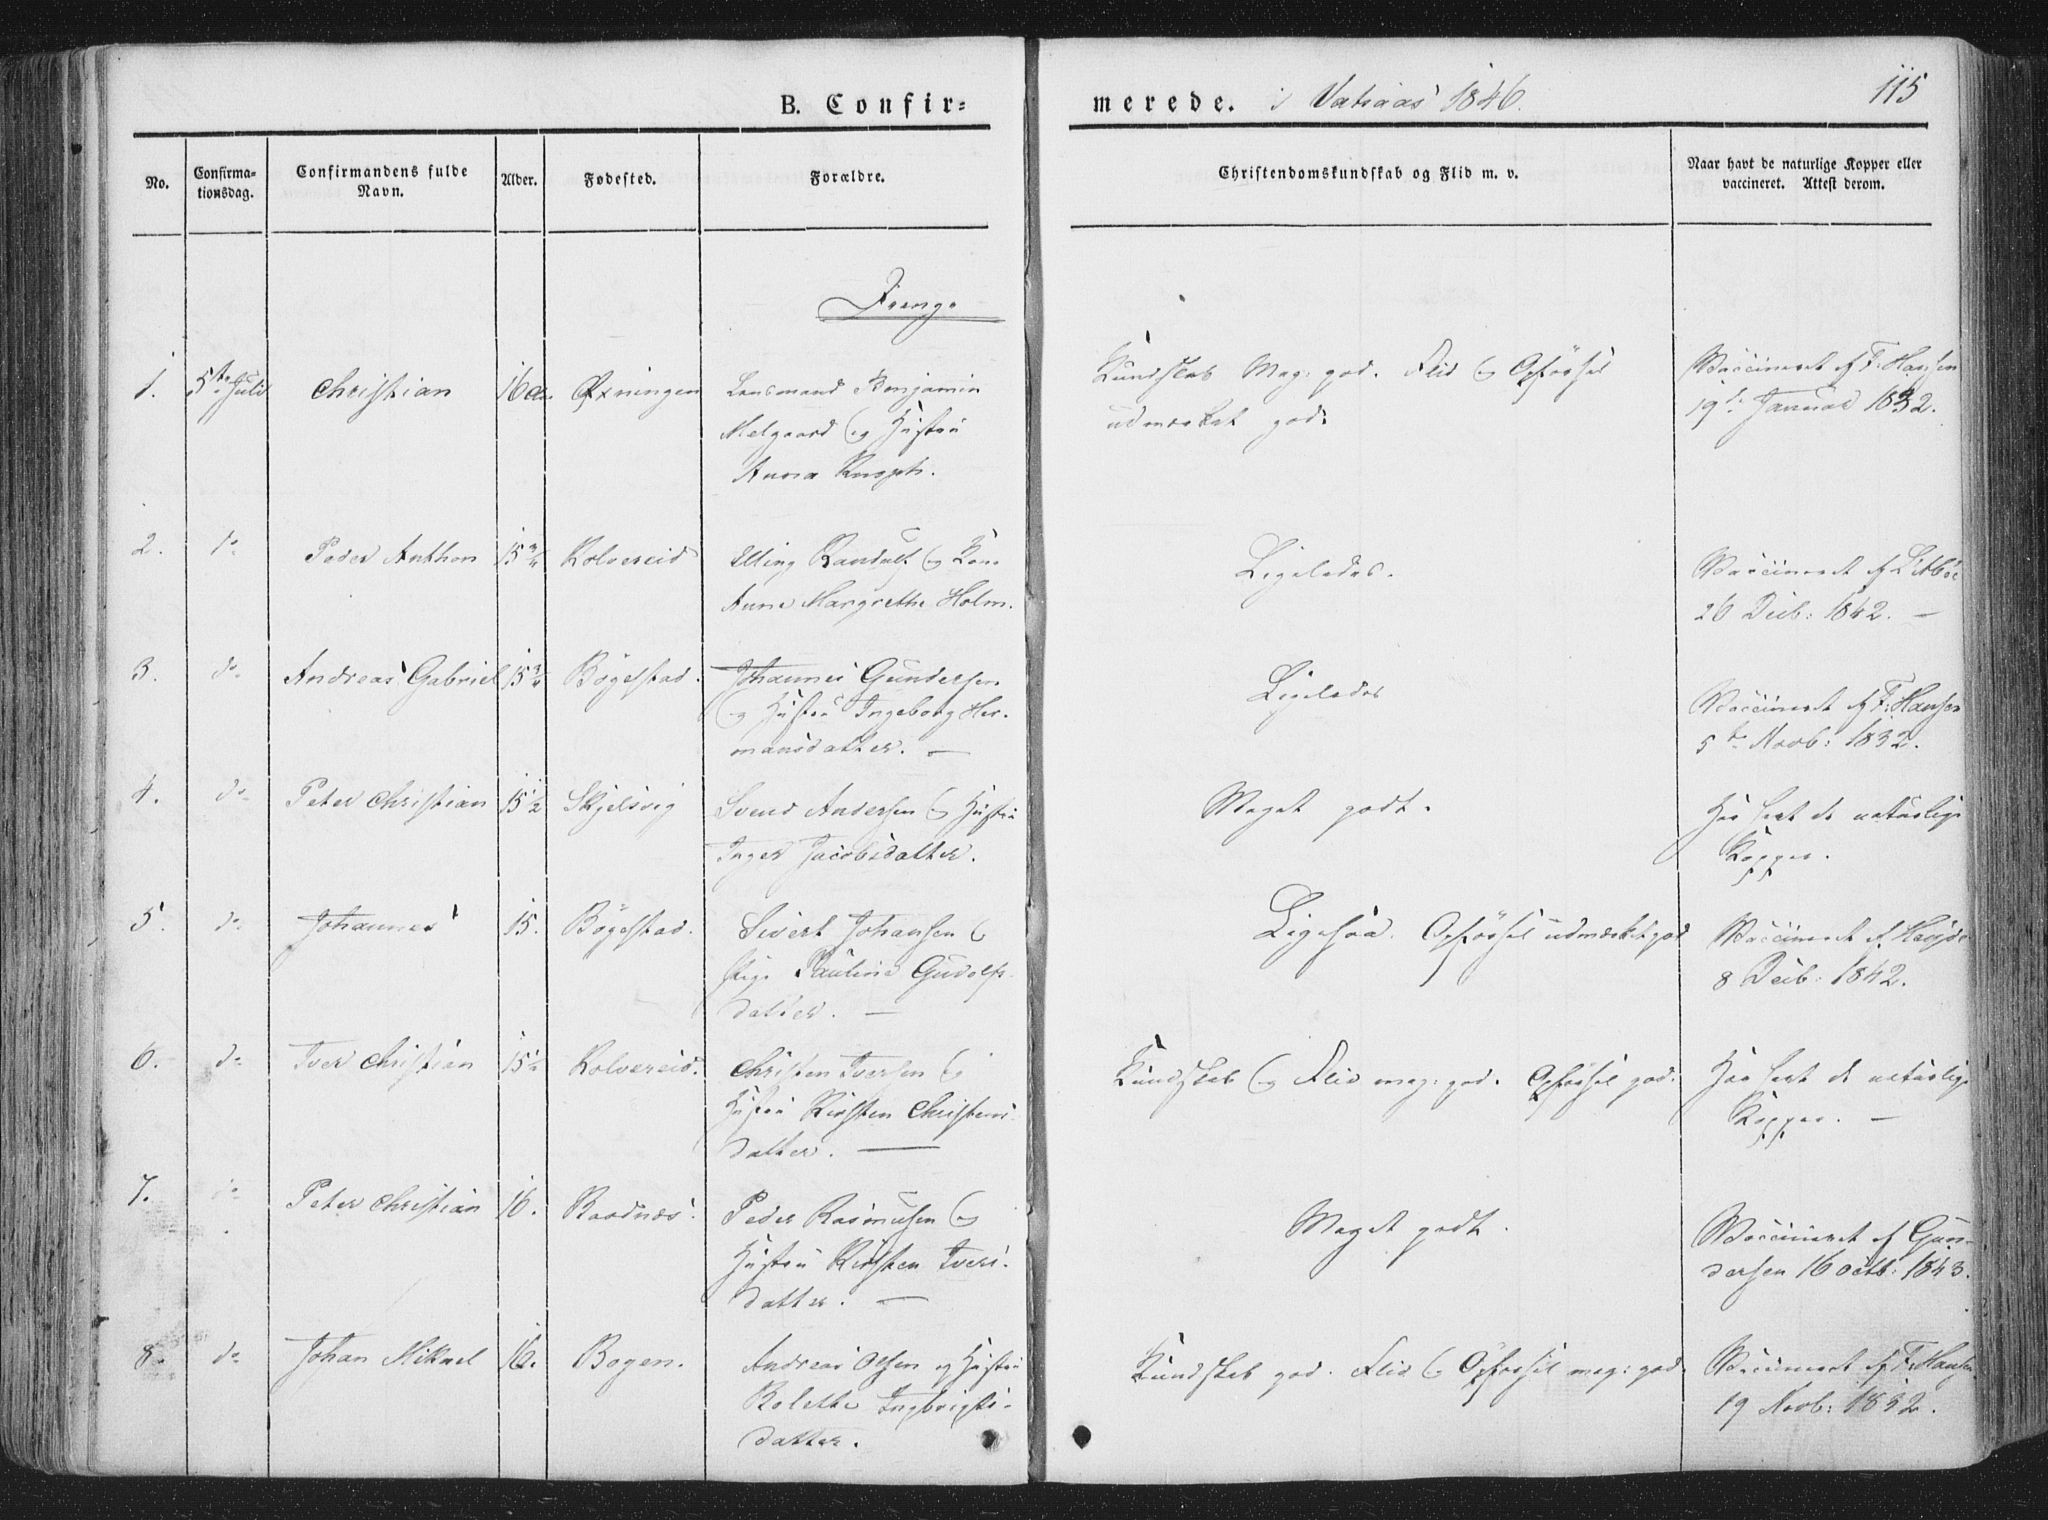 B. Confir=
merede. i Vatnaas 1846.
115
No.
Confirma-
tionsdag.
Confirmandens fulde
Navn.
Alder.
Fødested.
Forældre.
Christendomskundskab og Flid m. v.
Naar havt de naturlige Kopper eller
vaccineret. Attest derom.
Drenge
1. 5te Juli Christian 16 Øxningen
Lensmand Benjamin
Melgaard og Hustru
Anna
Kundskab Meg: god. Flid og Opførsel
udmærket god.
Vaccineret af F: Hansen
19de Januar 1832.
2. do Peder Anthon 15 3/4 Kolvereid
Elling Randulf og Kone
Anne Margrethe Holm.
Ligeledes.
Vaccineret af
26 Decb: 1842. —
3. do Andreas Gabriel 15 3/4 Bögestad.
Johannes Gundersen
og Hustru Ingeborg Her-
mansdatter. —
Ligeledes
Vaccineret af F: Hansen
5te Novb: 1832.
4. do Peter Christian 15 1/2 Skjelsvig
Svend Andersen og Hustru
Inger Jacobsdatter.
Meget godt.
Har havt de naturlige
Kopper.
5. do Johannes 15. Bögestad.
Sivert Johansen og
Pige Pauline Gudolfs-
datter. —
Ligesaa. Opførsel udmærket god
Vaccineret af
8 Decb: 1842.
6. do Iver Christian 15 1/2 Kolvereid.
Christen Iversen og
Hustru Kirsten Christens-
datter. —
Kundskab og Flid meg: god. Opførsel god.
Har havt de naturlige
Kopper. —
7. do Peter Christian 16. Baadnæs.
Peder Rasmusen og
Hustru Kirsten Ivers-
datter. —
Meget godt.
Vaccineret af Gun-
dersen 16 Octb: 1843.
8. do Johan Mikael 16. Bogen.
Andreas Olsen og Hustru
Kolette Ingbrigts-
datter.
Kundskab god. Flid og Opførsel meg: god.
Vaccineret af F: Hansen
19 Novb: 1832.